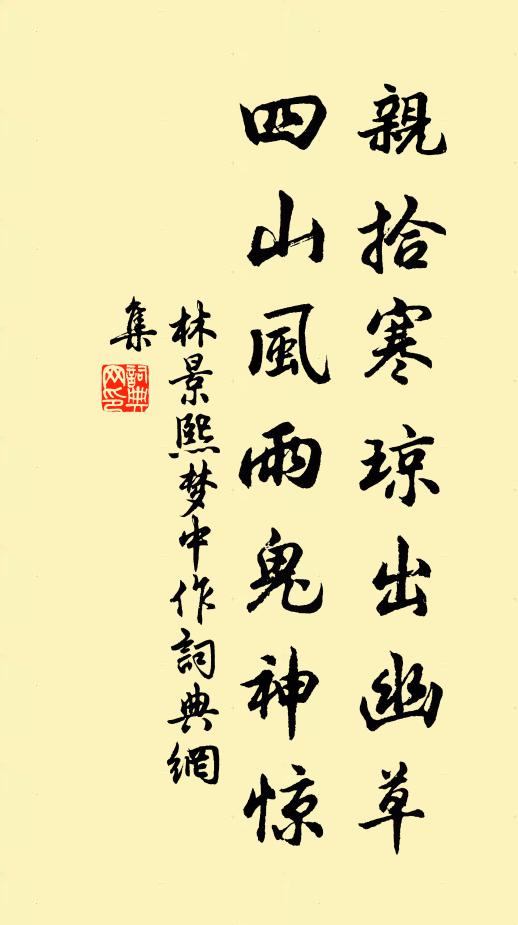 親拾寒琼出幽草
四山風雨鬼神惊
林景熙梦中作詞典網
集
詞典
网印